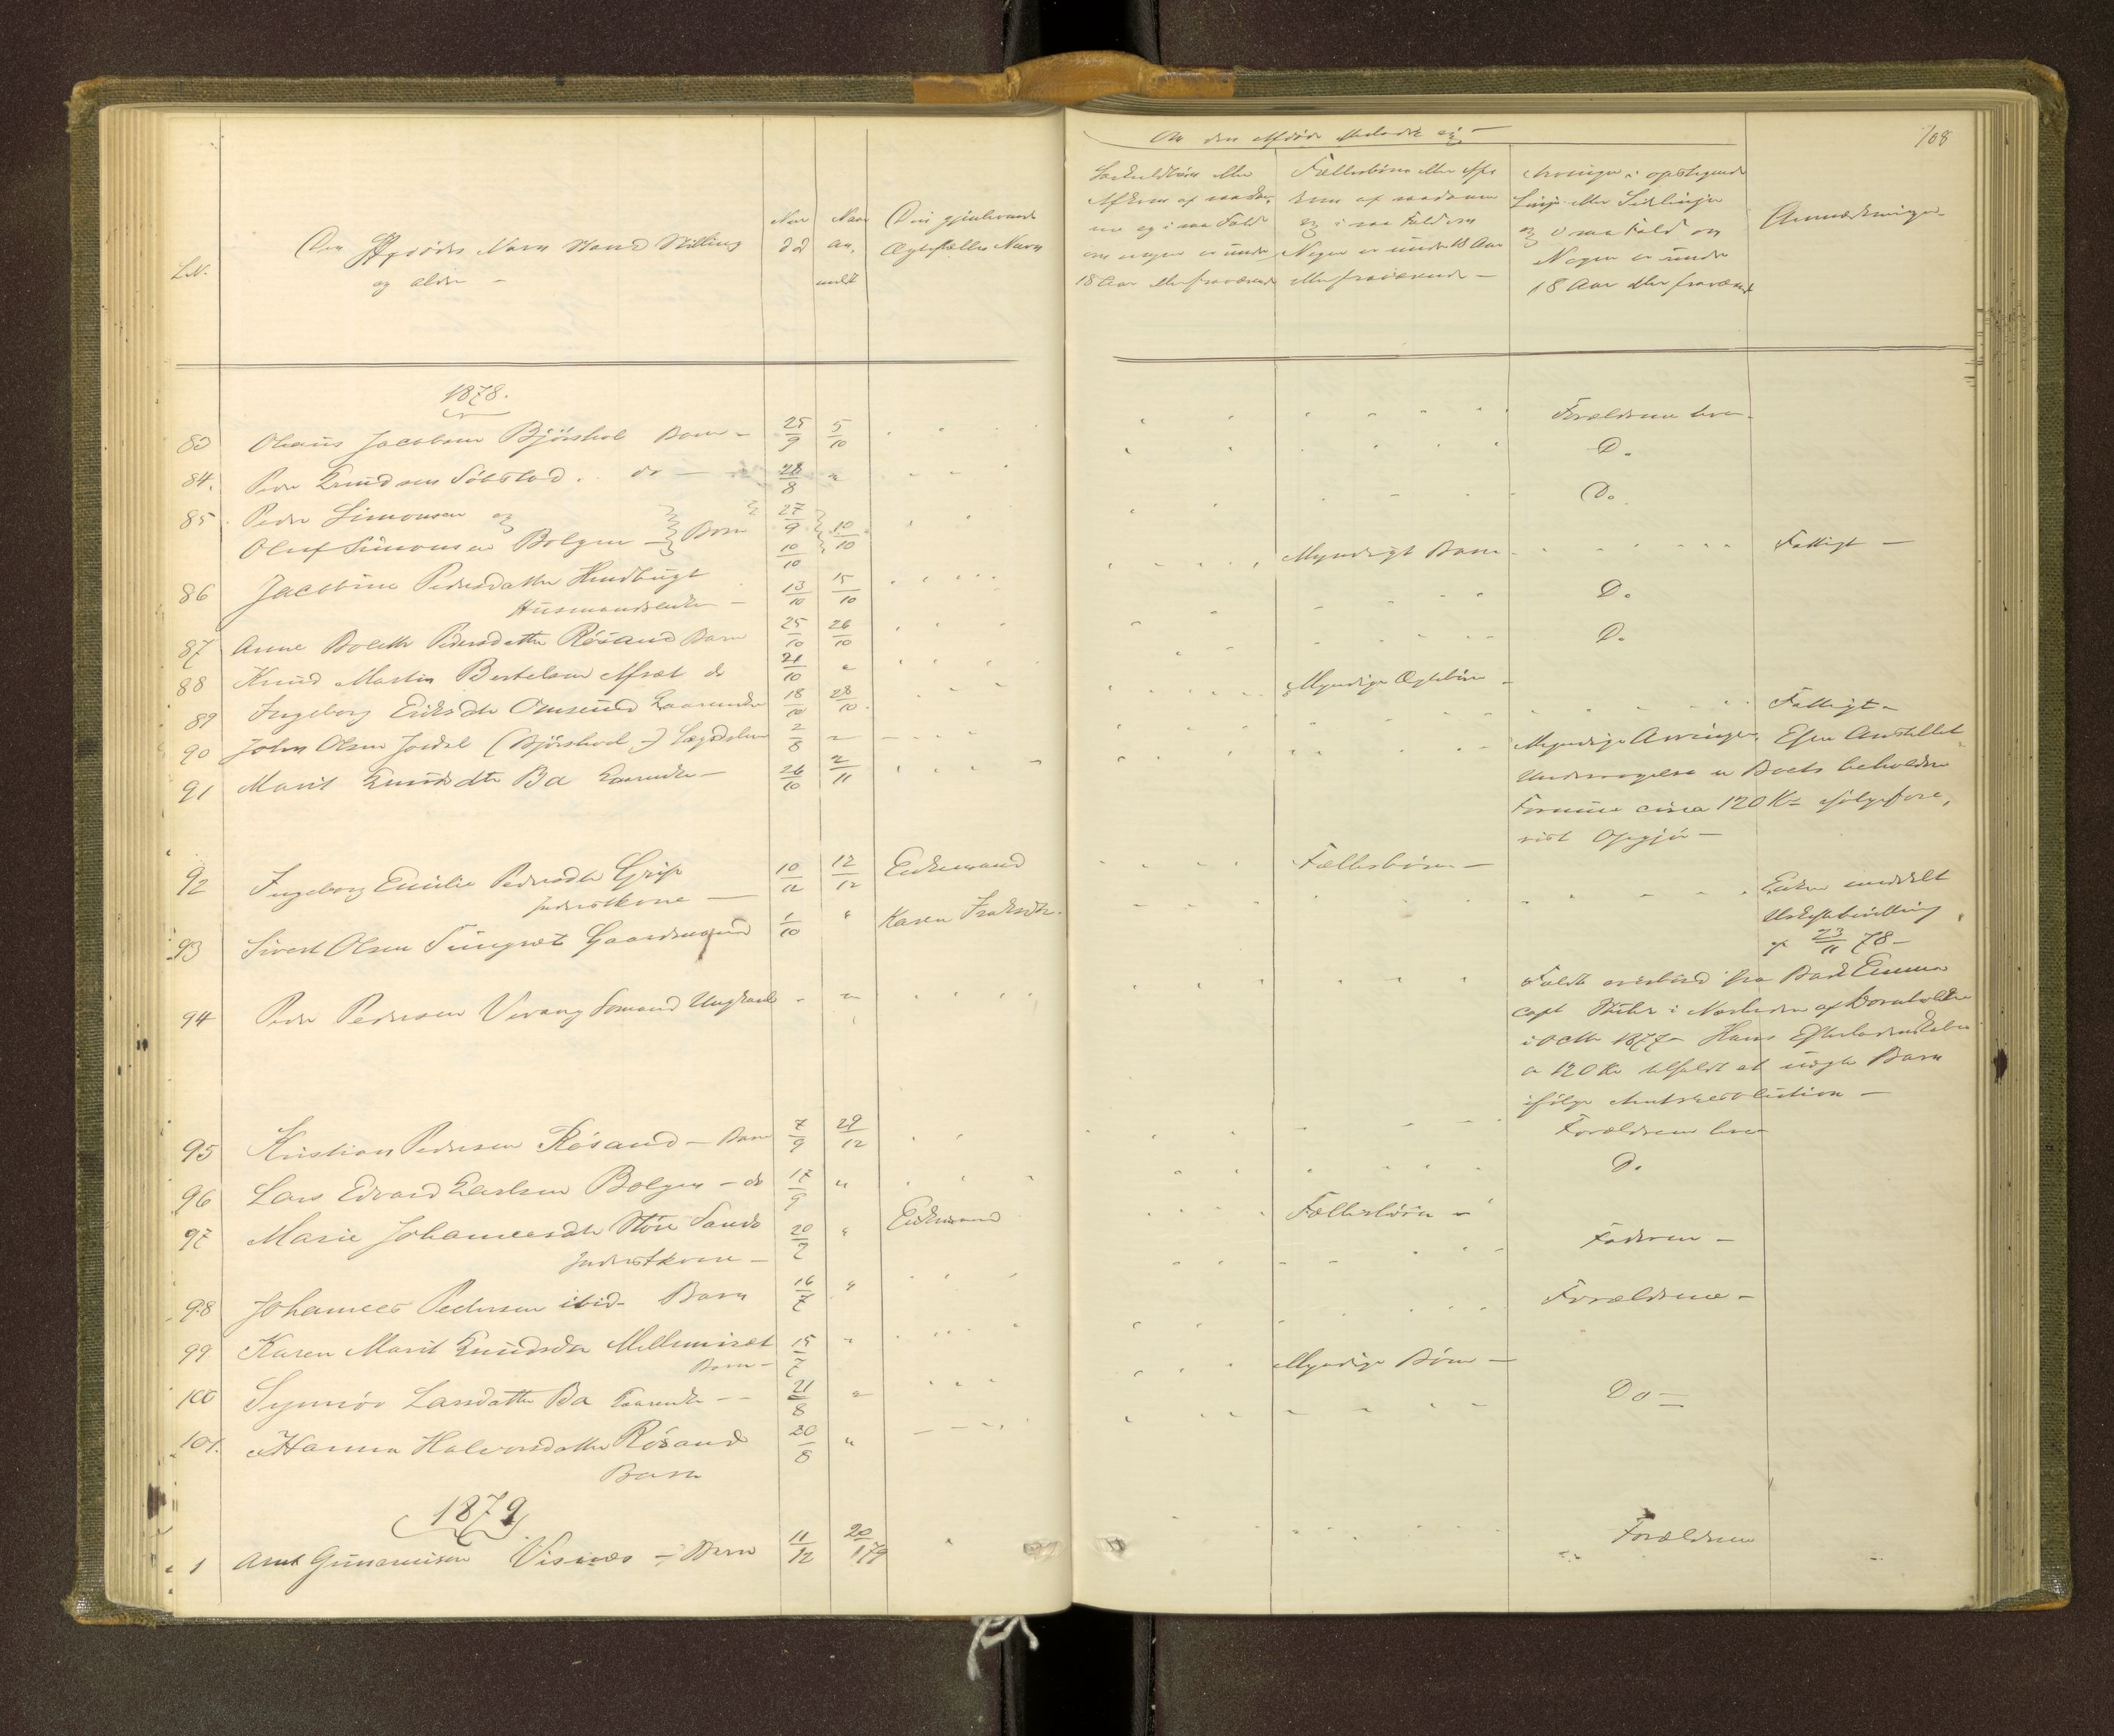 108
Om den Afdøde efterlader sig
L.N.
Den Afdødes Navn Stand Stilling
og Alder -
Naar
død
Naar
an,
meldt
Den gjenlevende
Ægtefælles Navn
Særkuldbørn eller
Afkom af saadan,
ne og i saa Fald
om nogen er under
18 Aar eller fraværende
Fællesbørn eller Af,
kom af saadanne
og i saa Fald om
Nogen er under 18 Aar
eller fraværende -
Arvinger i opstigende
Linje eller Sidelinjen
og i saa Fald om
Nogen er under
18 Aar eller fraværende
Anmærkninger
1878.
83 Olaus Jacobsen Bjørshol Barn - 25/9 5/10 Forældrene leve
84. Peder Knudsen Sobstad . do - 28/8 " D.
85 Peder Simonsen og 27/9 Do.
Oluf Simonsen Bolgen - Børn 10/10 10/10
86 Jacobine Pedersdatter Hendbugt 13/10 15/10 Myndigt Barn Fattigt -
Husmandsenke -
87 Anne Bolette Pedersdatter Røsand Barn 25/10 26/10 D.
88 Knud Martin Bertelsen do 21/10 " D.
89 Ingeborg Eriksdtr Omsund Kaarenke 18/10 28/10 Myndige Ægtebørn -
90 John Olsen Jordal (Bjørshol -) Lægdslem 2/8 " Fattigt -
91 Marit Knudsdtr Ba Kaarenke - 26/10 2/11 Myndige Arvinger. Efter Anstillet
Undersøgelse er Boets beholdne
Formue circa 120 Kr ifølge fore,
vist Opgjør -
92 Ingeborg Emilie Pedersdtr Grip 10/11 12/12 Enkemand Fællesbørn -
Inderstkone -
93 Sivert Olsen Gaardmand 1/10 " Karen Enken meddelt
Uskiftebevilling
af 23/11 78 -
94 Peder Pedersen Vevang Sømand Ungkarl - " Faldt overbord fra Bark Emma
Capt i Nærheden af Bornholm
i Octbr 1877 - Hans Efterladenskaber
a 120 Kr tilfaldt et uægte Barn
ifølge Amtsresolution -
95 Kristian Pedersen Røsand - Barn 7/9 29/12 Forældrene leve
96 Lars Edvard Bolgen - do 17/9 " D.
97 Marie Johannesdtr Støre Sande 20/7 " Enkemand Fællesbørn -
Inderstkone - Faderen -
98 Johannes Pedersen ibid - Barn 16/7 "
99 Karen Marit Knudsdtr 15/7 " Forældrene -
Barn -
100 Synnøv Larsdatter Ba Kaarenke - 21/8 " Myndige Børn -
101. Hanna Halvorsdatter Røsand 20/8 " Do -
Barn
1879
1 Arnt Gunnersen Visnæs - Barn 11/12 20/1 79 Forældrene